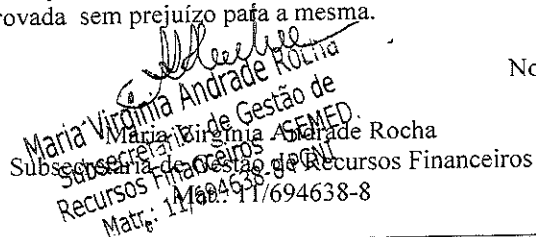 rovada sem prejuízo para a mesma.
No
Maria Virgínia Andrade Rocha
Subsecretaria de Gestão de
Recursos Financeiros - SEMED.
Matr.: 11/694638-8 - PCNI
Maria Virgínia Andrade Rocha
Subsecretaria de Gestão de Recursos Financeiros
Mat.: 11/694638-8